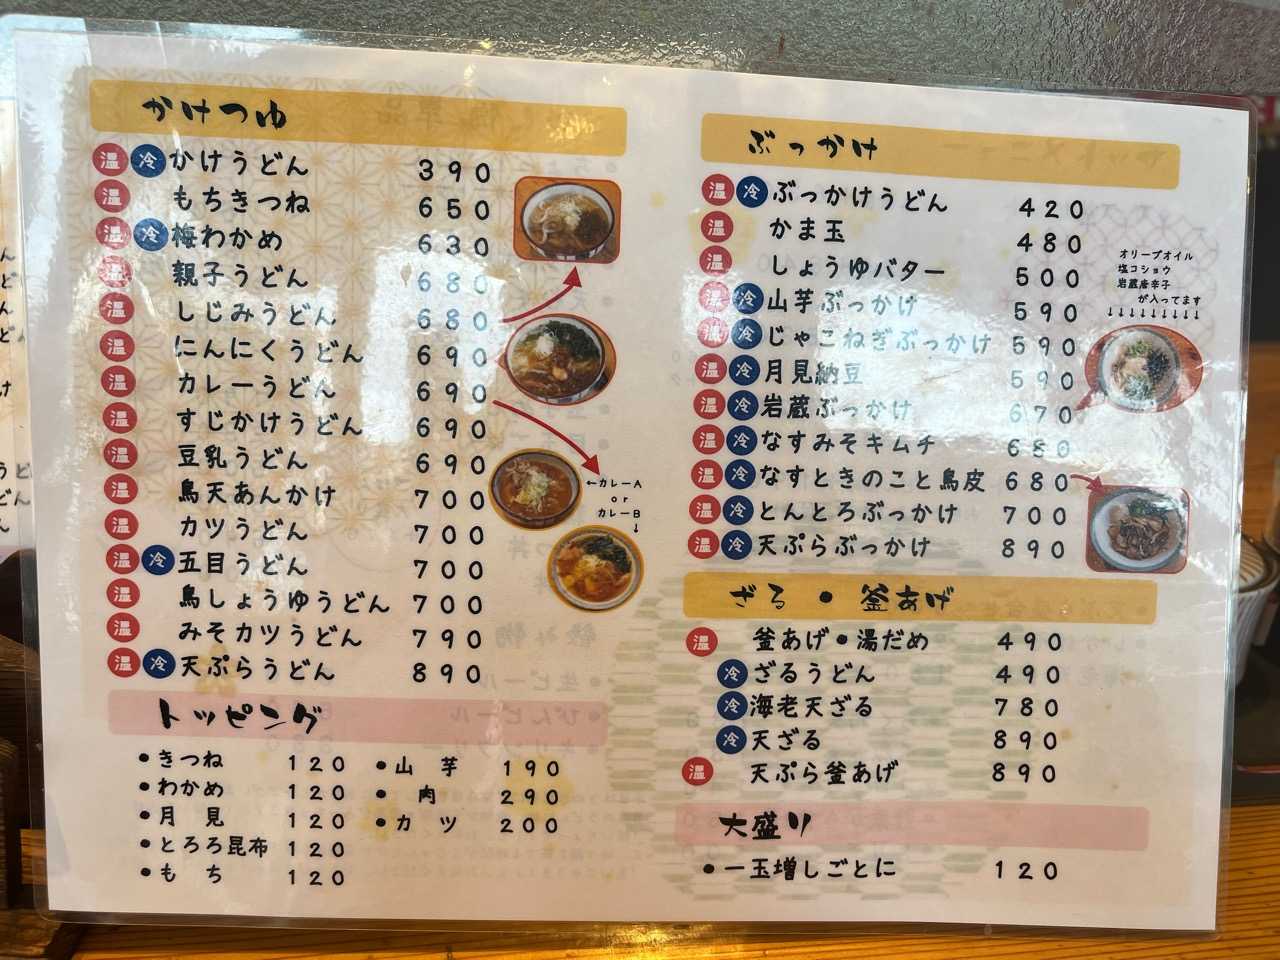 かけつゆ
温 冷 かけうどん 390
温 もちきつね 650
温 冷 梅わかめ 630
温 親子うどん 680
温 しじみうどん 680
温 にんにくうどん 690
温 カレーうどん 690
温 すじかけうどん 690
温 豆乳うどん 690
温 鳥天あんかけ 700
温 カツうどん 700
温 冷 五目うどん 700
温 鳥しょうゆうどん 700
温 みそカツうどん 790
温 冷 天ぷらうどん 890
←カレーA
or
カレーB
↓
トッピング
•きつね 120
•わかめ 120
•月見 120
•とろろ昆布 120
•もち 120
•山芋 190
•肉 290
•カツ 200
ぶっかけ
温 冷 ぶっかけうどん 420
温 かま玉 480
温 しょうゆバター 500
温 冷 山芋ぶっかけ 590
温 冷 じゃこねぎぶっかけ 590
温 冷 月見納豆 590
温 冷 岩蔵ぶっかけ 670
温 冷 なすみそキムチ 680
温 冷 なすときのこと鳥皮 680
温 冷 とんとろぶっかけ 700
温 冷 天ぷらぶっかけ 890
オリーブオイル
塩コショウ
岩蔵唐辛子
が入ってます
↓↓↓↓↓↓↓↓↓
ざる・釜あげ
温 釜あげ•湯だめ 490
冷 ざるうどん 490
冷 海老天ざる 780
冷 天ざる 890
温 天ぷら釜あげ 890
大盛り
•一玉増しごとに 120